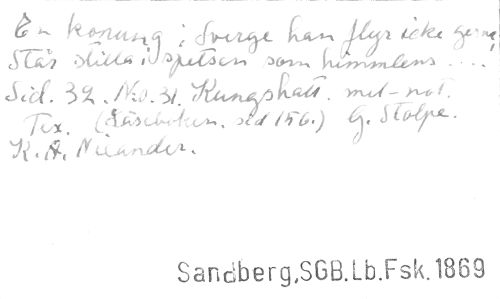 En konung i Sverge han flyr icke gerna,
Står stilla i spetsen som himmlens ....
Sid. 32. No. 31. Kungshatt. met-not.
Tex. (Läseboken. sid 156.) G. Stolpe.
K. A. Nicander.
Sandberg,SGB.Lb.Fsk.1869